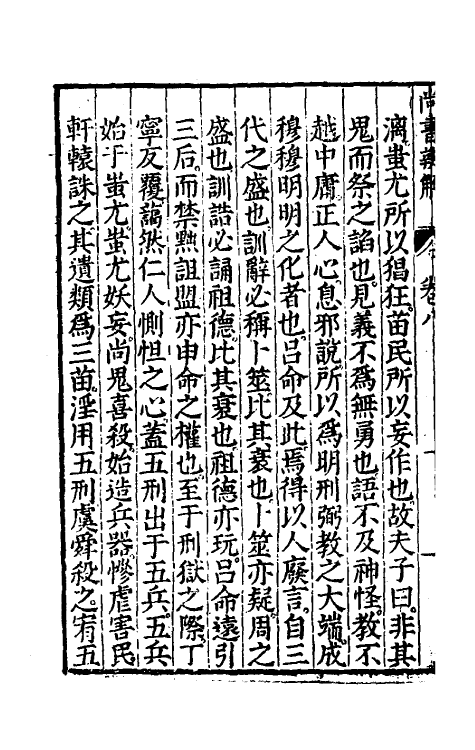 尚書䟽解 卷八
漓蚩尤所以猖狂苗民所以妄作也故夫子曰非其
鬼而祭之諂也見義不為無勇也語不及神怪教不
越中庸正人心息邪說所以為明刑弼教之大端成
穆穆明明之化者也呂命及此焉得以人廢言自三
代之盛也訓辭必稱卜筮比其衰也卜筮亦疑周之
盛也訓誥必誦祖德比其衰也祖德亦玩呂命遠引
三后而禁黥詛盟亦申命之權也至于刑獄之際丁
寧反覆藹然仁人惻怛之心蓋五刑出于五兵五兵
始于蚩尤蚩尤妖妄尚鬼喜殺始造兵器慘虐害民
軒轅誅之其遺類為三苗淫用五刑虞舜殺之宥五